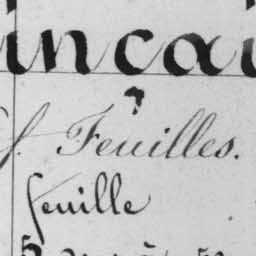 incai
f. Feuilles.
feuille